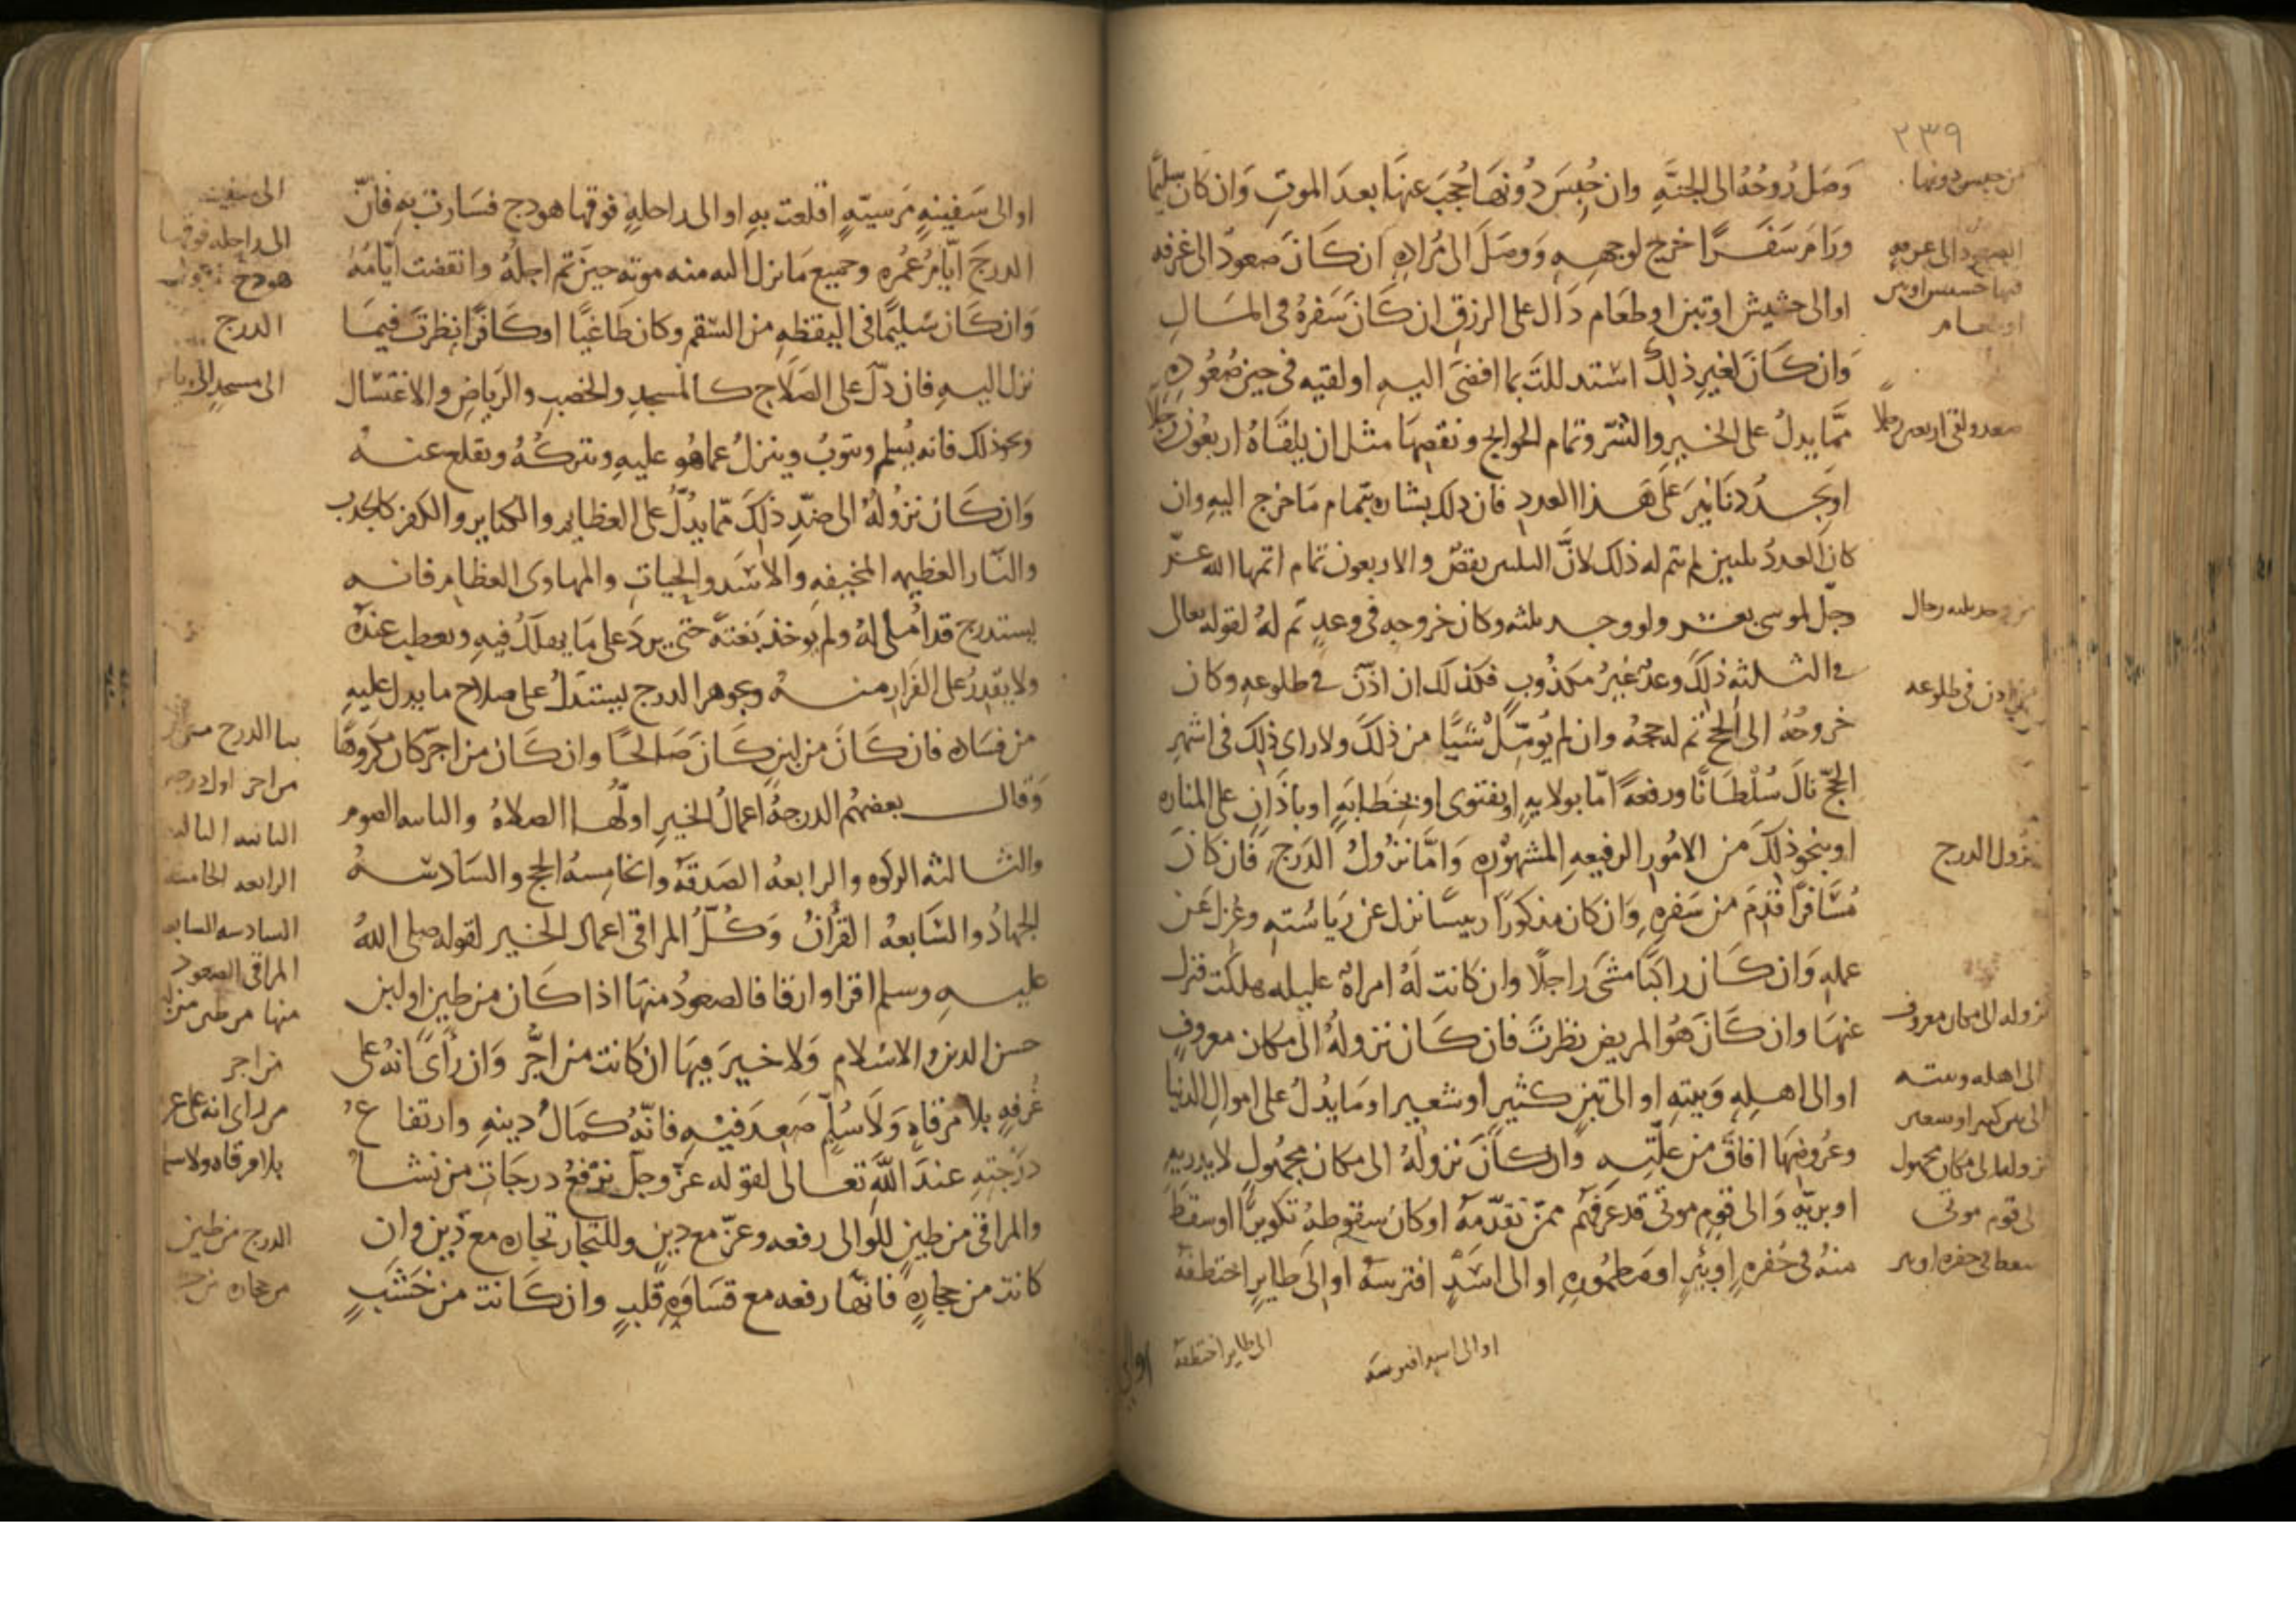 ٢٣٩
وَصَل رُوحُهُ الى الجنَّهِ وان حُبِسَ دُونَهَا حُجِبَ عنهَا بعدَ الموتِ وَان كان سليمًا
ورَامَ سَفَرًا خرج لوجههِ وَوصَلَ الى مُرادِهِ ان كَانَ صعودُ الى غرفه
اوالى حشيش اوتبن اوطعَام دَال على الرزقِ ان كَانَ سَفرهُ فى المَال
وَان كَانَ لغيرِ ذلِكَ استدللتَ بما افضَى اليهِ او لقيه فى حين صُعُودِهِ
ممَّا يدلُ على الخيرِ والشرّ وتمام الحوايج ونقصِهَا مثل ان يلقَاهُ اربعُون رجلًا
اويَجدُ دنَانِيرَ علَى هَذا العددِ فان دلك بشاره بتمام مَا خرج اليهِ وان
كان العددُ ثلثين لم يتم له ذلك لانَّ الثلثين نقصٌ والاربعون تمام اتمها الله عزّ
وجلّ لموسى بعشر ولو وجد ثلثه وكان خروجه فى وعدٍ تم لهُ لقوله تعالى
فى الثلثه ذلِكَ وعدٌ غيرُ مكذُوبٍ فكذلك ان اذّن فى طلوعه وكان
خروجُهُ الى الحج تم له حجهُ وان لم يُومّل شيًا من ذلكَ ولا راى ذلك فى اشهر
الحجّ نالَ سُلطَانًا ورفعةً امّا بولايهٍ اوبفتوى اوبخطابَهٍ اوباذانٍ على المناره
اوبنحوذلِكَ من الامُورِ الرفيعهِ المشهوره وَامَّا نزُولُ الدَرجِ فَان كَانَ
مُسَافرًا قَدِمَ من سَفرِهِ وَان كان مذكورًا رييسًا نزل عن رَياسَتهِ وعُزِلَ عَن
عملهِ وَان كَان راكبًا مشَى راجلًا وان كانت لَهُ امراهٌ عليله هلكَت فنزل
عنهَا وان كَانَ هُوَ المريض نظرتَ فان كَان نزولهُ الى مكان معروفٍ
اوالى اهلِهِ وَبيتهِ اوالى تبن كثيرٍ أوشعير اومَا يدُلُ على اموال الدنيا
وعُروضِهَا افاقَ من علّتِهِ وَان كَانَ نزولُهُ الى مكان مجهُول لا يدريهِ
اوبريّهٍ وَالى قومٍ موتى قد عَرفَهُم ممن تقدّمهُ اوكان سقوطهُ تكويرًا اوسقط
منهُ فى حُفرهِ اوبئرٍ اومَطمُورهِ اوالى اسَدٍ افترسَهُ اوالَى طايرٍ اختطفهُ
من حبس دونها
الصعود الى غرفه
فيها حشيش اوتبن
اوطعام
صعد ولقى اربعين رجلًا
ثلثه رجال
اذن فى طلوعه
نزول الدرج
نزوله الى مكان معروف
الى اهله وبيته
الى تبن كثير اوشعير
نزولها الى مكان مجهول
الى قوم موتى
سقط فى حفره اوبير
اوالى اسد افترسه
الى طاير اختطفه
اوالى
اوالى سَفينهٍ مَرسيّهٍ اقلعت بهِ اوالى راحلهٍ فوقها هودج فسَارت بهِ فانّ
الدرجَ ايّامُ عُمُرهِ وجميع مَا نزل اليه منه موته حين تم اجلهُ وانقضت ايّامُهُ
وَان كَان سليمًا فى اليقظهِ من السّقم وكان طَاغيًا اوكَافرًا نظرتَ فيمَا
نزل اليهِ فان دلّ على الصَلاحِ كالمسجدِ والخصبِ والرّياضِ والاغتسَال
ونحوذلك فانه يُسلم ويتوبُ وينزلُ عما هُو عليهِ ويتركُهُ ويقلع عنهُ
وَان كَان نزُولهُ الى ضدّ ذلكَ ممّا يدُلُّ على العظايم والكباير والكفر كالجدب
والنّار العظيمه المخيفهِ والاسَد والحيات والمهاوى العظام فانه
يستدرج قد امُلى لهُ ولم يوخذ بَغتةً حتى يرِدَ على مَا يهلكُ فيهِ ويعطب عندهُ
ولا يقدِرُ على الفرَارِ منهُ وبجوهر الدرج يستدَلُ على صلاحِ ما يدل عليهِ
من فسَاده فان كَانَ من لبن كَانَ صَالحًا وان كَان من اجرّ كان مكروهًا
وَقال بعضهُم الدرجهُ اعمالُ الخيرِ اولُها الصلاهُ والثانيه الصوم
والثالثه الزكوه والرابعهُ الصَدقهُ والخامِسهُ الحج والسَادسهُ
الجهادُ والسَابعهُ القرآنُ وَكُلُّ المراقى اعمال الخير لقوله صلى اللهُ
عليهِ وسلم اقرا وارقا فالصعودُ منهَا اذا كَان من طين اولبن
حسن الدين والاسلام وَلا خيرَ فيهَا ان كانت من اجرّ وَان رَأى انهُ على
غُرفهٍ بلا مَرقاهٍ وَلَا سُلّمٍ صَعِدَ فيهِ فانّهُ كمَالُ دينهِ وارتفاع
درَجتهِ عندَ اللَّه تعالى لقوله عزّ وجل نَرْفَعُ درجَاتٍ من نشا
والمراقى من طينٍ للوالى رفعه وعزّ مع دينٍ وللتجار تجاره مع دينٍ وان
كانت من حجارهٍ فانّها رفعه مع قسَاوَهِ قلبٍ وان كَانت من خَشَبٍ
الى سفينه
الى راحله فوقها
هودج
الدرج
الى مسجد
بنا الدرج
من اجر اول درجه
الثانيه الثالثه
الرابعه الخامسه
السادسه السابعه
المراقى الصعود
منها من طين
من اجر
من راى انه على
بلا مرقاه ولا سلم
الدرج من طين
من حجاره